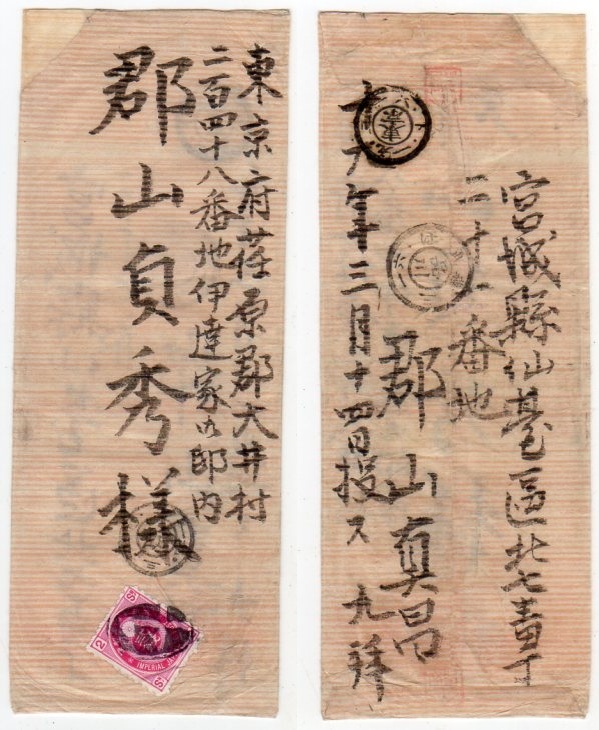 東京府荏原郡大井村
二百四十八番地伊達家御邸内
郡山貞秀様
2 SN
IMPERIAL JA
宮城縣仙臺區北七番丁
二十一番地
郡山真昌
九拜
十九年三月十四日投ス